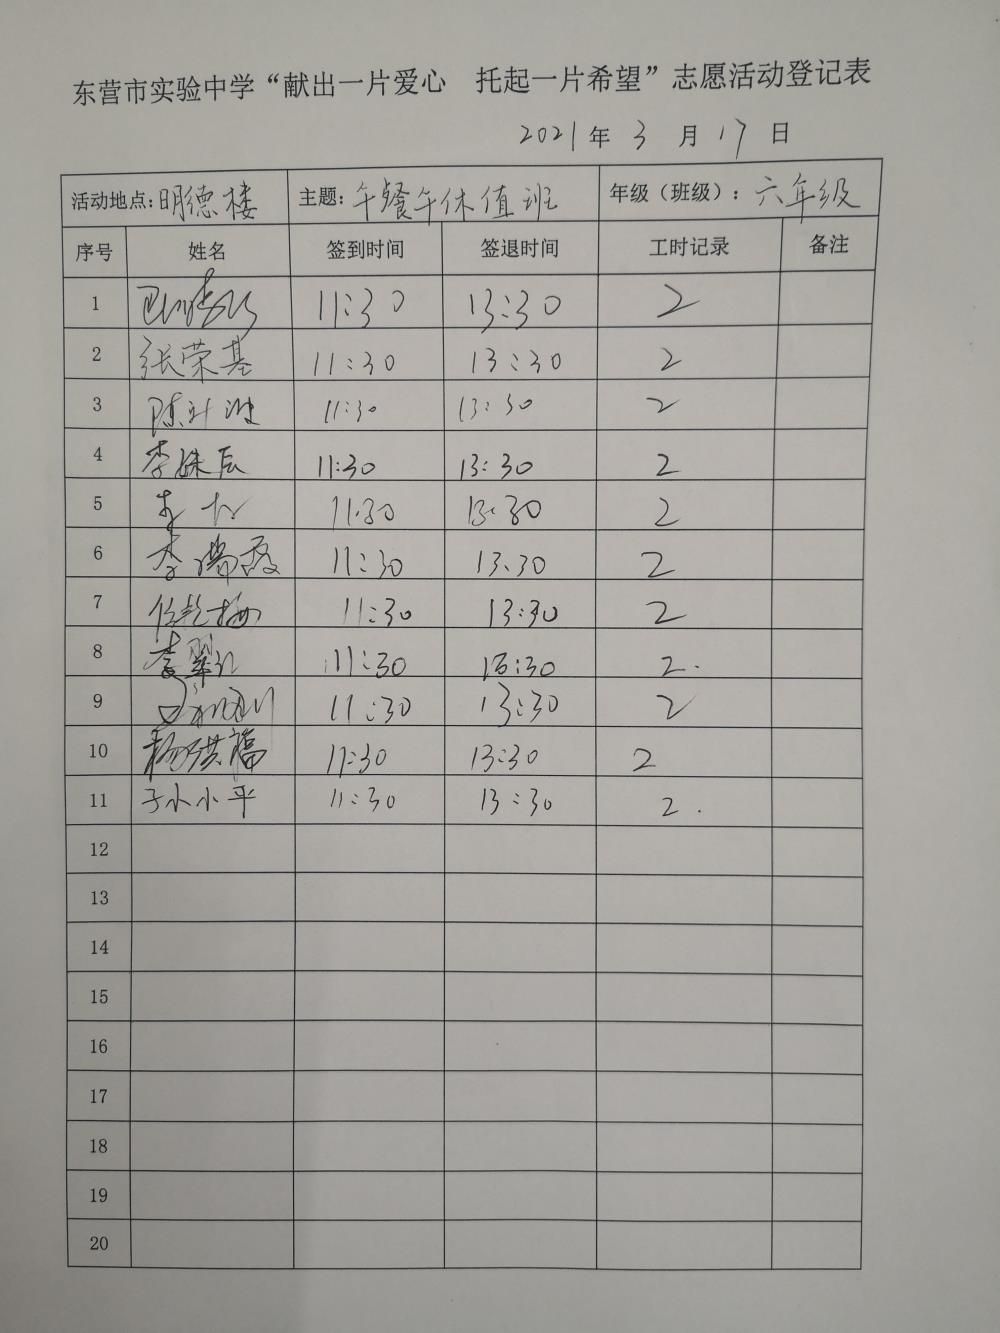 东营市实验中学“献出一片爱心 托起一片希望”志愿活动登记表
2021年3月17日
活动地点:明德楼 主题:午餐午休值班 年级（班级）：六年级
序号 姓名 签到时间 签退时间 工时记录 备注
1 11:30 13:30 2
2 张荣基 11:30 13:30 2
3 陈 11:30 13:30 2
4 李姝辰 11:30 13:30 2
5 11:30 13:30 2
6 李瑞霞 11:30 13.30 2
7 任艳梅 11:30 13:30 2
8 李翠红 11:30 13:30 2.
9 11:30 13:30 2
10 杨洪福 11:30 13:30 2
11 孙小平 11:30 13:30 2.
12
13
14
15
16
17
18
19
20